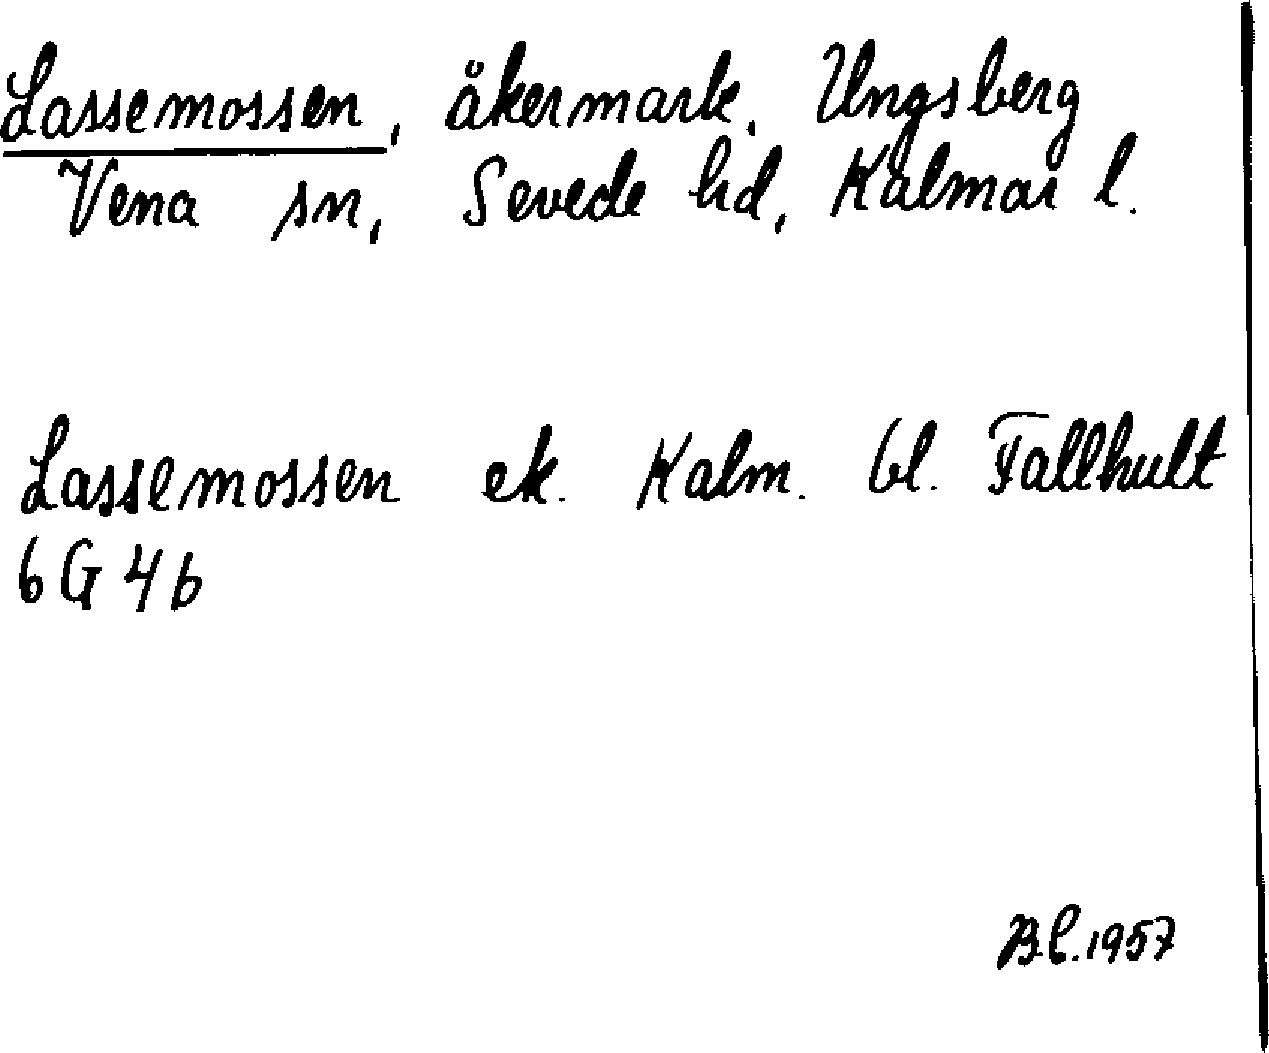 Lassemossen, åkermark. Ungsberg
Vena sn, Sevede hd, Kalmar l.
Lassemossen ek. Kalm. bl. Fallhult
6 G 4 b
Bl. 1957